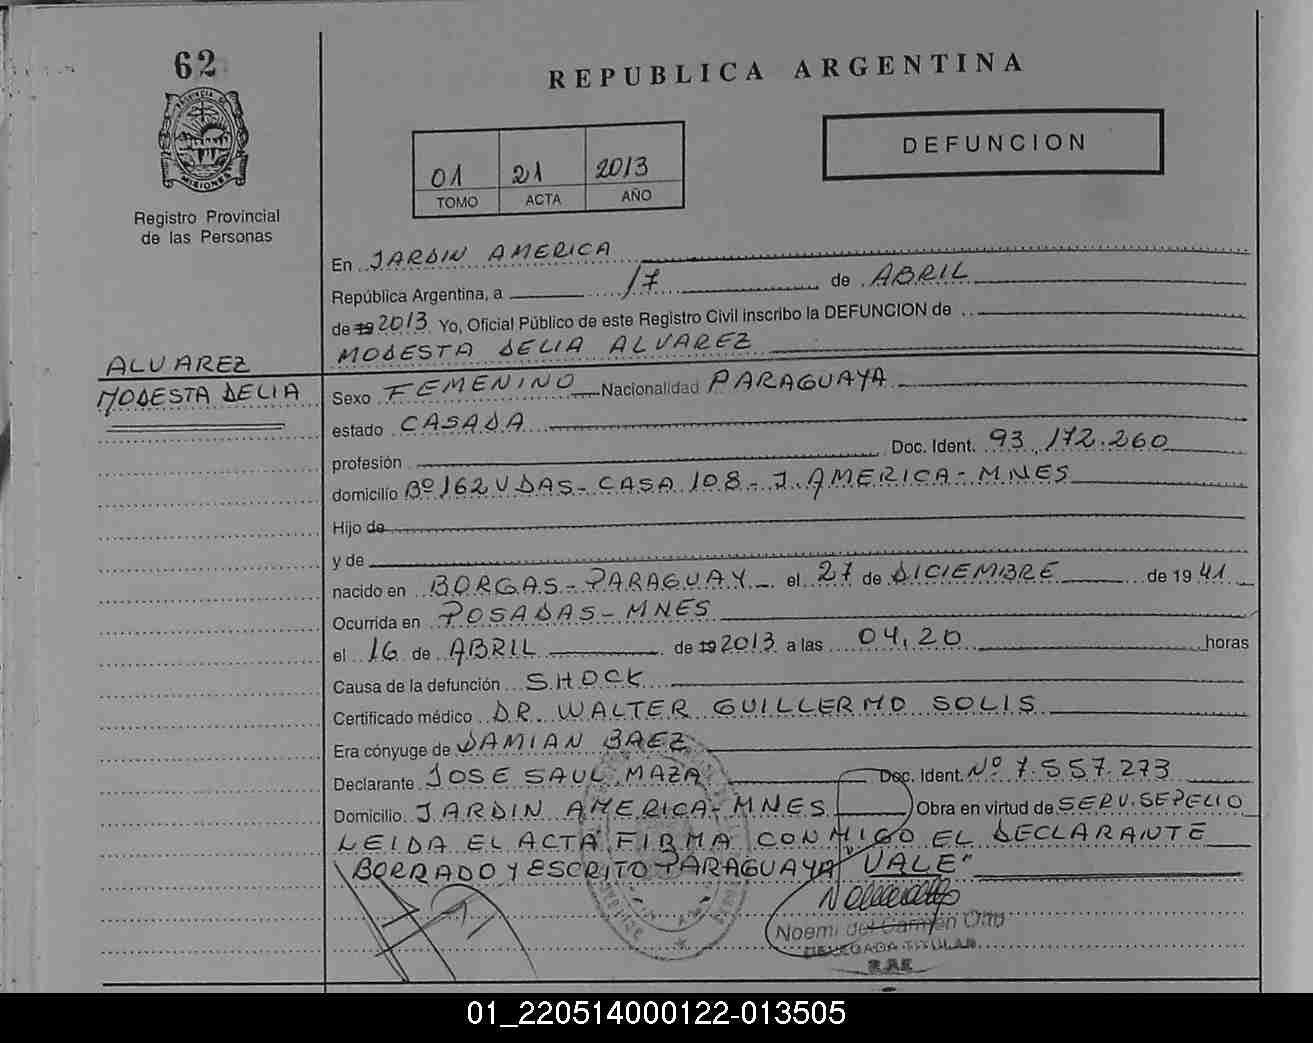 62
REPUBLICA ARGENTINA
PROVINCIA DE
MISIONES
Registro Provincial
de las Personas
01 21 2013
TOMO ACTA AÑO
DEFUNCION
En JARDIN AMERICA
República Argentina, a 17 de ABRIL
de 19 2013 Yo, Oficial Público de este Registro Civil inscribo la DEFUNCION de
MODESTA DELIA ALVAREZ
ALVAREZ
MODESTA DELIA
Sexo FEMENINO Nacionalidad PARAGUAYA
estado CASADA
profesión Doc. Ident. 93.172.260
domicilio Bº 162 VDAS - CASA 108 - J. AMERICA - MNES
Hijo de
y de
nacido en BORGAS - PARAGUAY el 27 de DICIEMBRE de 19 41
Ocurrida en POSADAS - MNES
el 16 de ABRIL de 19 2013 a las 04,20 horas
Causa de la defunción SHOCK
Certificado médico DR. WALTER GUILLERMO SOLIS
Era cónyuge de DAMIAN BAEZ
Declarante JOSE SAUL MAZA Doc. Ident. Nº 7.557.273
Domicilio JARDIN AMERICA - MNES Obra en virtud de SERV. SEPELIO
LEIDA EL ACTA FIRMA CONMIGO EL DECLARANTE
BORRADO Y ESCRITO PARAGUAYA "VALE"
Noemi del Carmen
DELEGADA TITULAR
01_220514000122-013505